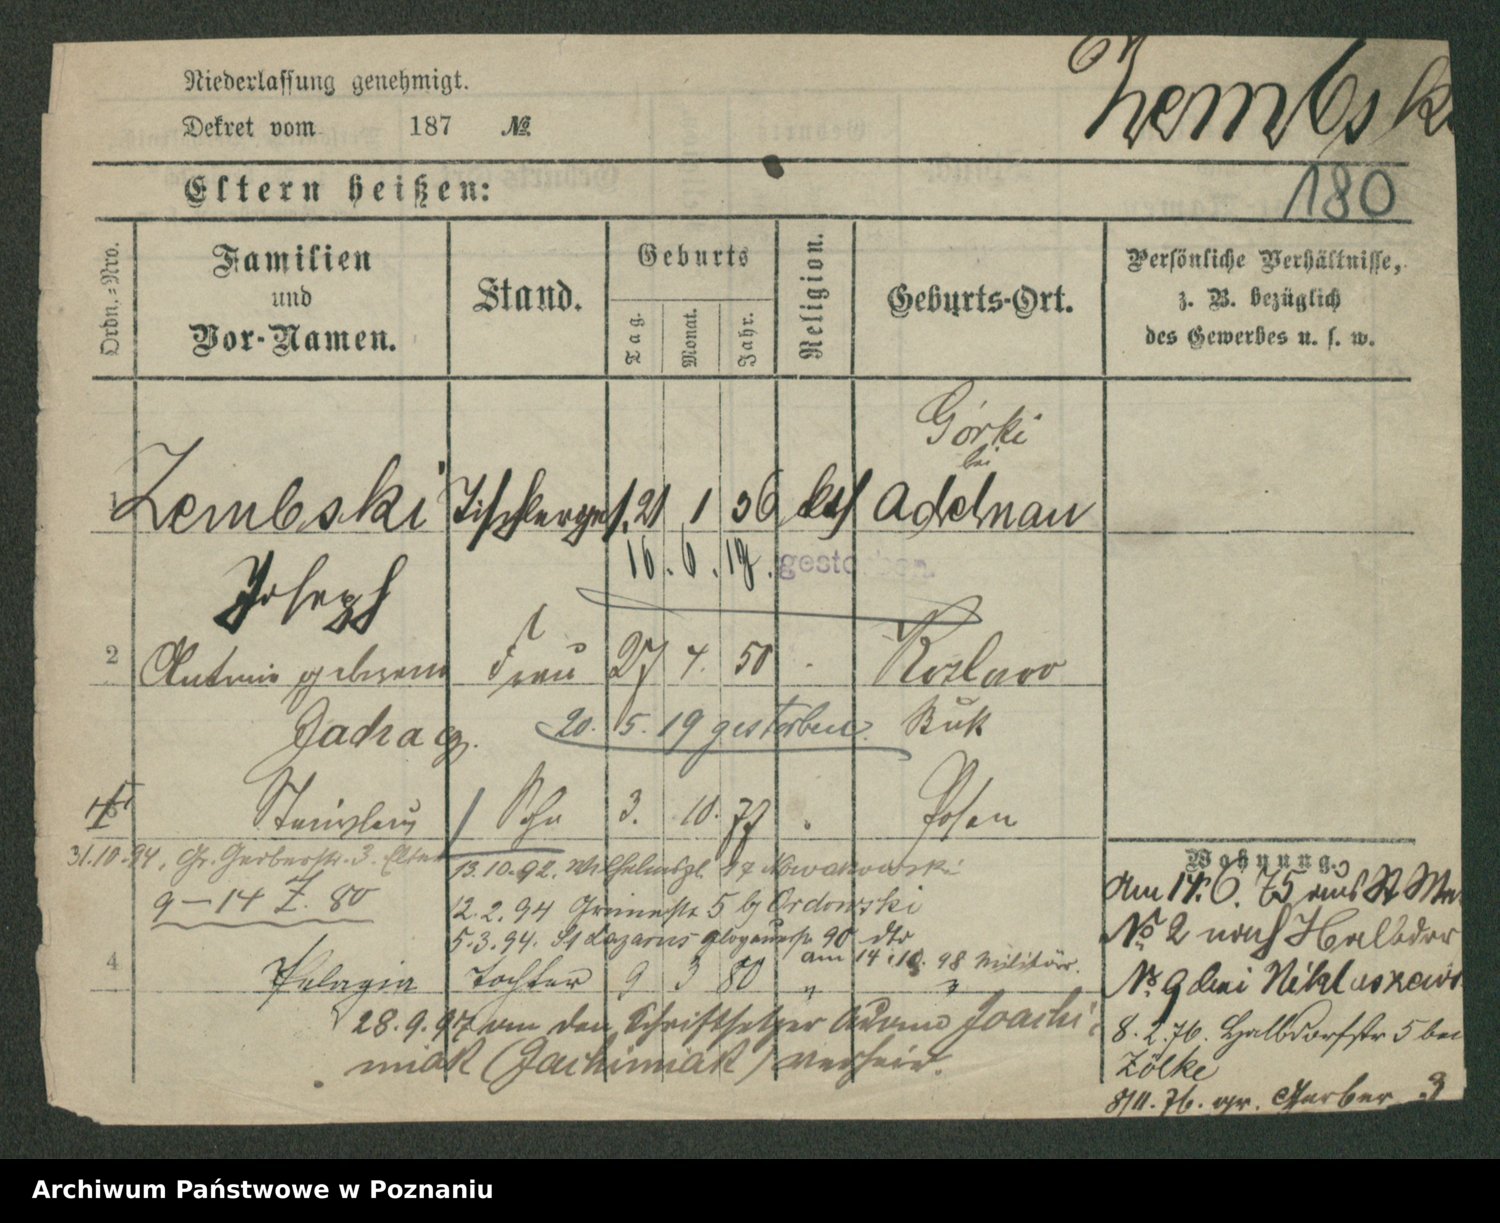 Niederlassung genehmigt.
Dekret vom 187 №
Zembski
180
Eltern heißen:
Ordn.-Nro.
Familien und Vor-Namen.
Stand.
Geburts
Tag.
Monat.
Jahr.
Religion.
Geburts-Ort.
Persönliche Verhältnisse, z. B. bezüglich des Gewerbes u. s. w.
Górki
bei
1 Zembski Tischlerges. 21 1 36 kth Adelnau
16. 6. 19. gestorben.
Joseph
2 Antonie geborene Frau 27 4. 50 Koslowo
Jadraczg. 20. 5. 19 gestorben. Buk
Stanislaus Sohn 3. 10. 77 Posen
31.10.84, Gr. Gerberstr. 3. Eltern
13.10.92. Wilhelmspl. 17 Nowakowski
9-14 Z. 80
12.2.94 5 bj Ordowski
5.3.94. St Lazarus Glogauerstr. 90 dto
am 14.10. 98 Militär.
4 Pelagia Tochter 9 3 80 " "
28.9.97 an den Schriftsetzer Joachi-
miak (Jachimiak) verheir.
Wohnung.
Am 14. 6. 75 aus St Ma
No 2 nach Halbdor
No. 9 bei Niklaszews
8.2.76. Halbdorfstr 5 bei
Zölke
8/11. 76. gr. Gerber 3
Archiwum Państwowe w Poznaniu